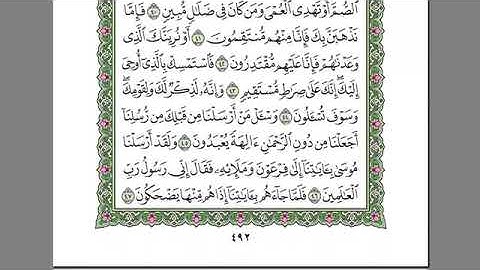 ٱلصُّمَّ أَوْ تَهْدِى ٱلْعُمْىَ وَمَن كَانَ فِى ضَلَٰلٍ مُّبِينٍ ٤٠ فَإِمَّا
نَذْهَبَنَّ بِكَ فَإِنَّا مِنْهُم مُّنتَقِمُونَ ٤١ أَوْ نُرِيَنَّكَ ٱلَّذِى
وَعَدْنَٰهُمْ فَإِنَّا عَلَيْهِم مُّقْتَدِرُونَ ٤٢ فَٱسْتَمْسِكْ بِٱلَّذِىٓ أُوحِىَ
إِلَيْكَ ۖ إِنَّكَ عَلَىٰ صِرَٰطٍ مُّسْتَقِيمٍ ٤٣ وَإِنَّهُۥ لَذِكْرٌ لَّكَ وَلِقَوْمِكَ ۖ
وَسَوْفَ تُسْـَٔلُونَ ٤٤ وَسْـَٔلْ مَنْ أَرْسَلْنَا مِن قَبْلِكَ مِن رُّسُلِنَآ
أَجَعَلْنَا مِن دُونِ ٱلرَّحْمَٰنِ ءَالِهَةً يُعْبَدُونَ ٤٥ وَلَقَدْ أَرْسَلْنَا
مُوسَىٰ بِـَٔايَٰتِنَآ إِلَىٰ فِرْعَوْنَ وَمَلَإِي۟هِۦ فَقَالَ إِنِّى رَسُولُ رَبِّ
ٱلْعَٰلَمِينَ ٤٦ فَلَمَّا جَآءَهُم بِـَٔايَٰتِنَآ إِذَا هُم مِّنْهَا يَضْحَكُونَ ٤٧
٤٩٢